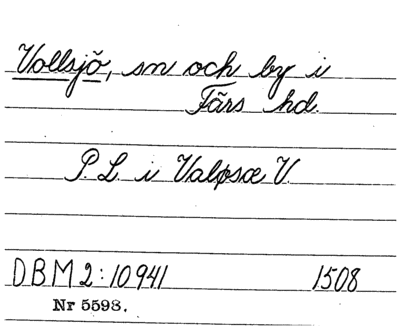 Vollsjö, sn och by i
Färs hd.
P. L. i Valøsæ V.
DBM 2:10941 1508
Nr 5598.